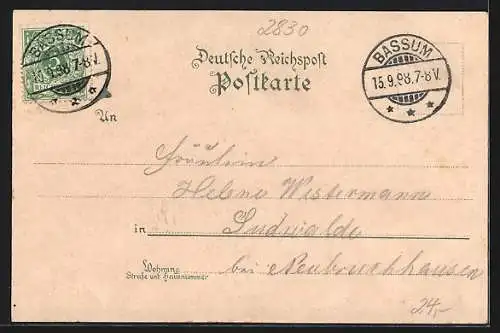 2830
BASSUM
15.9.98.7-8V.
Deutsche Reichspost
Postkarte
BASSUM
15.9.98.7-8V.
An
Fräulein
Helene Westermann
in Sudwalde
Wohnung
Straße und Hausnummer
bei Neubruchhausen
24,-